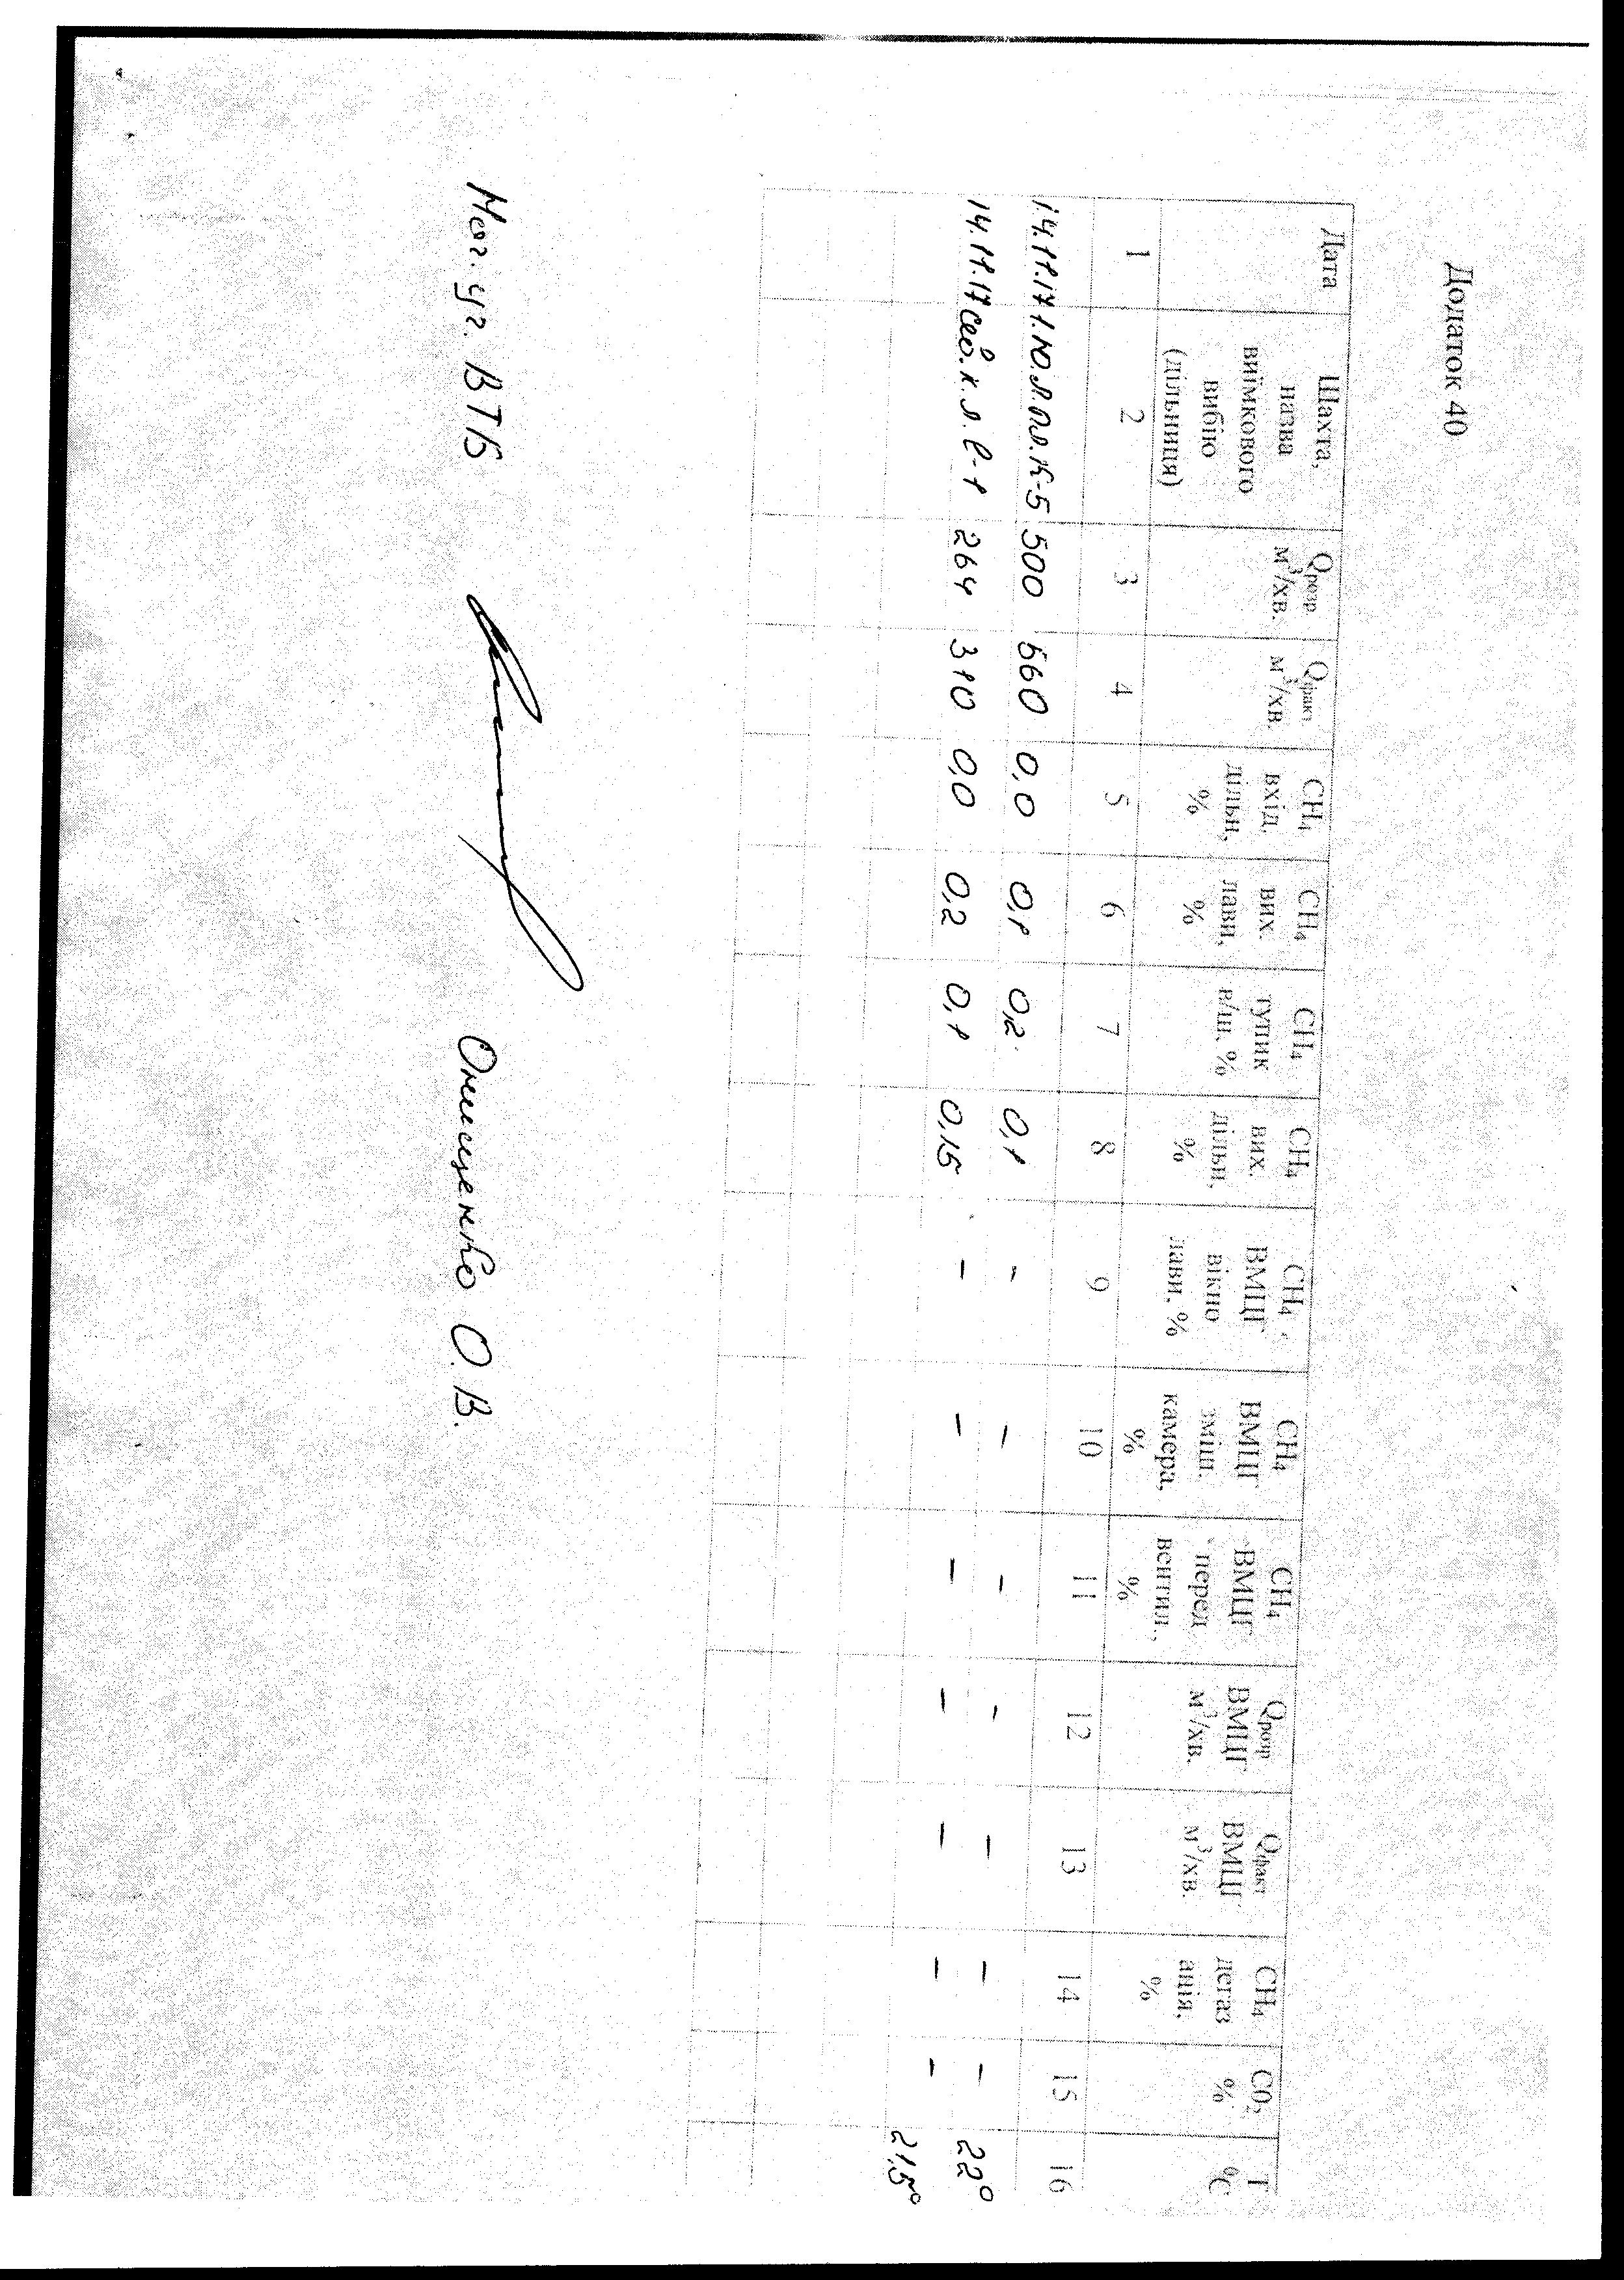 Додаток 40
Дата | Шахта, назва виїмкового вибію (дільниця) | Qрозр м³/хв. | Qфакт м³/хв. | CH₄ вхід. дільн, % | CH₄ вих. лави, % | CH₄ тупик в/ш, % | CH₄ вих. дільн, % | CH₄ ВМЦГ вікно лави, % | CH₄ ВМЦГ зміш. камера, % | CH₄ ВМЦГ перед вентил., % | Qрозр ВМЦГ м³/хв. | Qфакт ВМЦГ м³/хв. | CH₄ дегазація, % | C0₂ % | T °C
1 | 2 | 3 | 4 | 5 | 6 | 7 | 8 | 9 | 10 | 11 | 12 | 13 | 14 | 15 | 16
14.11.17 | 1.ю.л.пл.К-5 | 500 | 660 | 0,0 | 0,1 | 0,2 | 0,1 | - | - | - | - | - | - | - | 22°
14.11.17 | сев.к.л. l-1 | 264 | 310 | 0,0 | 0,2 | 0,1 | 0,15 | - | - | - | - | - | - | - | 21,5°
Нач. уч. ВТБ Онищенко О.В.